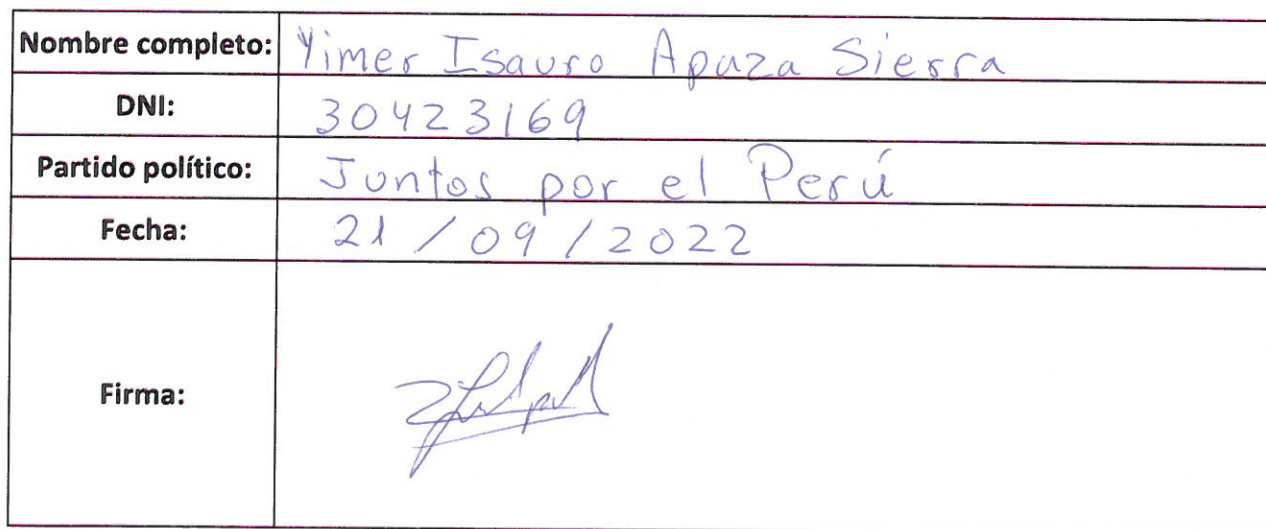 Nombre completo: Yimer Isauro Apaza Sierra
DNI: 30423169
Partido político: Juntos por el Perú
Fecha: 21 / 09 / 2022
Firma: